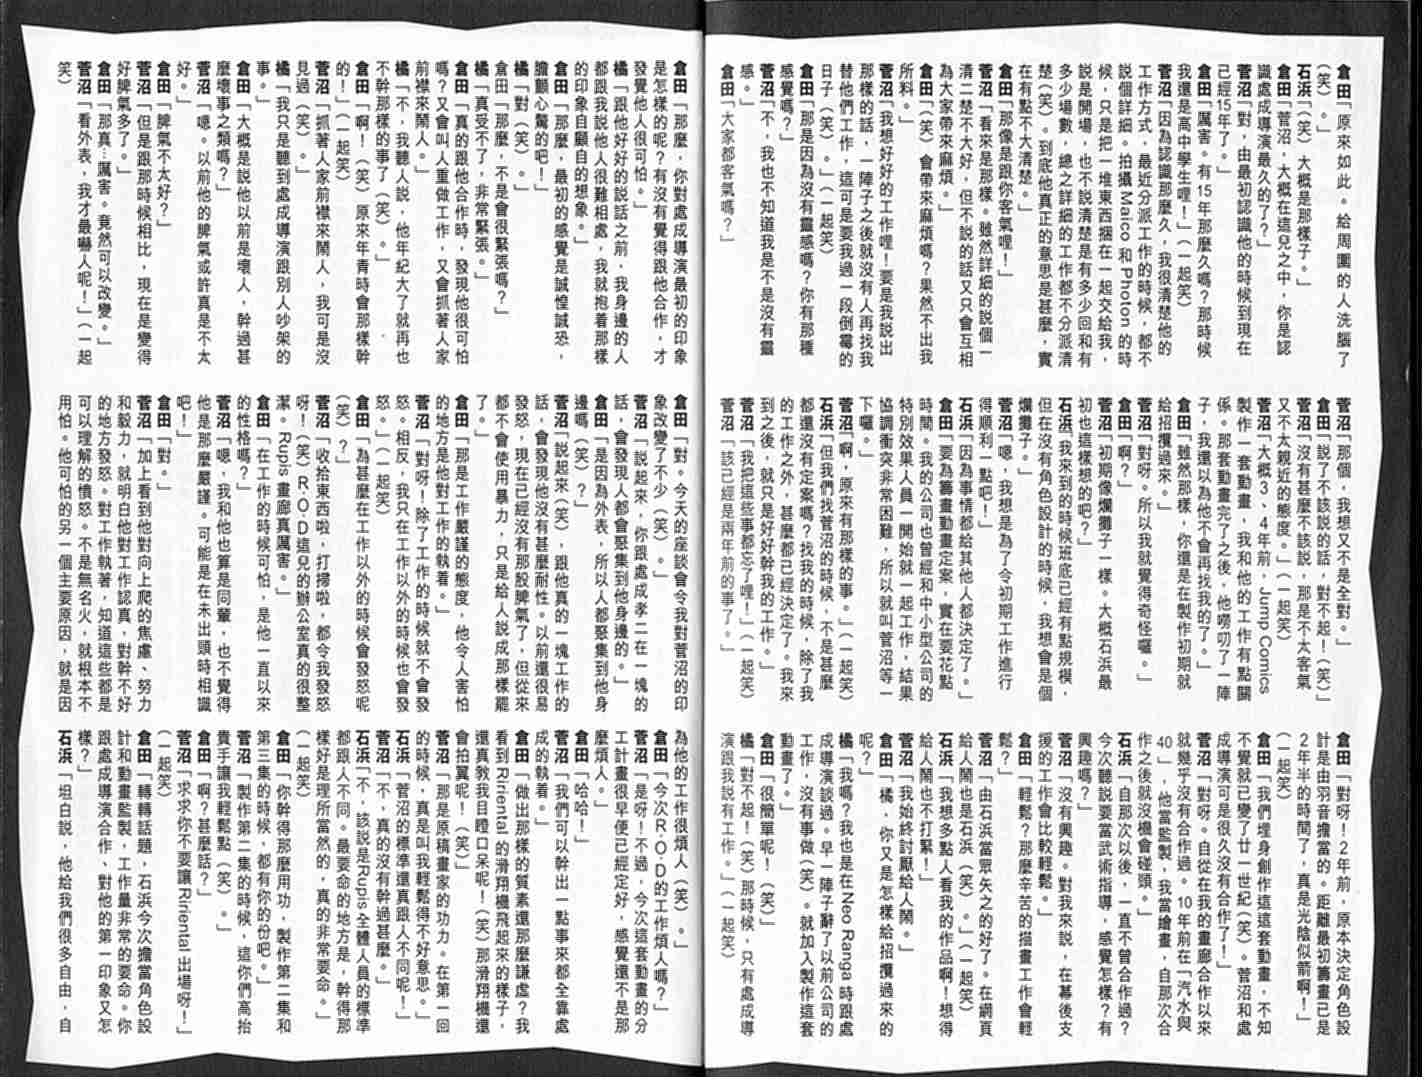 倉田「原來如此。給周圍的人洗腦了
(笑)。」
石浜「(笑)大概是那樣子。」
倉田「菅沼，大概在這兒之中，你是認
識處成導演最久的了？」
菅沼「對，由最初認識他的時候到現在
已經15年了。」
倉田「厲害。有15年那麼久嗎？那時候
我還是高中學生哩！」(一起笑)
菅沼「因為認識那麼久，我很清楚他的
工作方式，最近分派工作的時候，都不
說個詳細。拍攝Maico和Photon的時
候，只是把一堆東西捆在一起交給我，
說是開場，也不說清楚是有多少回和有
多少場數，總之詳細的工作都不分派清
楚(笑)。到底他真正的意思是甚麼，實
在有點不大清楚。」
倉田「那像是跟你客氣哩！」
菅沼「看來是那樣。雖然詳細的說個一
清二楚不大好，但不說的話又只會互相
為大家帶來麻煩。」
倉田「(笑)會帶來麻煩嗎？果然不出我
所料。」
菅沼「我想好好的工作哩！要是我說出
那樣的話，一陣子之後就沒有人再找我
替他們工作，這可是要我過一段倒霉的
日子(笑)。」(一起笑)
倉田「那是因為沒有靈感嗎？你有那種
感覺嗎？」
菅沼「不，我也不知道我是不是沒有靈
感。」
倉田「大家都客氣嗎？」
菅沼「那個，我想又不是全對。」
倉田「說了不該說的話，對不起！(笑)」
菅沼「沒有甚麼不該說，那是不太客氣
又不太親近的態度。」(一起笑)
菅沼「大概3、4年前，Jump Comics
製作一套動畫，我和他的工作有點關
係。那套動畫完了之後，他嘮叨了一陣
子，我還以為他不會再找我的了。」
倉田「雖然那樣，你還是在製作初期就
給招攬過來。」
菅沼「對呀。所以我就覺得奇怪囉。」
倉田「啊？」
菅沼「初期像爛攤子一樣。大概石浜最
初也這樣想的吧？」
石浜「我來到的時候班底已經有點規模，
但在沒有角色設計的時候，我想會是個
爛攤子。」
菅沼「嗯，我想是為了令初期工作進行
得順利一點吧！」
石浜「因為事情都給其他人都決定了。」
倉田「要為籌畫動畫定案，實在要花點
時間。我的公司也曾經和中小型公司的
特別效果人員一開始就一起工作，結果
協調衝突非常困難，所以就叫菅沼等一
下囉。」
菅沼「啊，原來有那樣的事。」(一起笑)
石浜「但我們找菅沼的時候，不是甚麼
都還沒有定案嗎？找我的時候，除了我
的工作之外，甚麼都已經決定了。我來
到之後，就只是好好幹我的工作。」
菅沼「我把這些事都忘了哩！」(一起笑)
菅沼「該已經是兩年前的事了。」
倉田「對呀！2年前，原本決定角色設
計是由羽音擔當的。距離最初籌畫已是
2年半的時間了，真是光陰似箭啊！」
(一起笑)
倉田「我們埋身創作這這套動畫，不知
不覺就已變了廿一世紀(笑)。菅沼和處
成導演可是很久沒有合作了！」
菅沼「對呀。自從在我的畫廊合作以來
就幾乎沒有合作過。10年前在「汽水與
40」，他當監製，我當繪畫，自那次合
作之後就沒機會碰頭。」
石浜「自那次以後，一直不曾合作過？
今次聽說要當武術指導，感覺怎樣？有
興趣嗎？」
菅沼「沒有興趣。對我來說，在幕後支
援的工作會比較輕鬆。」
倉田「輕鬆？那麼辛苦的描畫工作會輕
鬆？」
菅沼「由石浜當眾矢之的好了。在網頁
給人鬧也是石浜(笑)。」(一起笑)
石浜「我想多點人看我的作品啊！想得
給人鬧也不打緊！」
菅沼「我始終討厭給人鬧。」
倉田「橘，你又是怎樣給招攬過來的
呢？」
橘「我嗎？我也是在Neo Ranga時跟處
成導演談過。早一陣子辭了以前公司的
工作，沒有事做(笑)。就加入製作這套
動畫了。」
倉田「很簡單呢！(笑)」
橘「對不起！(笑)那時候，只有處成導
演跟我說有工作。」(一起笑)
倉田「那麼，你對處成導演最初的印象
是怎樣的呢？有沒有覺得跟他合作，才
發覺他人很可怕。」
橘「跟他好好的說話之前，我身邊的人
都跟我說他人很難相處，我就抱着那樣
的印象自顧自的想象。」
倉田「那麼，最初的感覺是誠惶誠恐，
膽顫心驚的吧！」
橘「對(笑)。」
倉田「那麼，不是會很緊張嗎？」
橘「真受不了，非常緊張。」
倉田「真的跟他合作時，發現他很可怕
嗎？又會叫人重做工作，又會抓著人家
前襟來鬧人。」
橘「不，我聽人說，他年紀大了就再也
不幹那樣的事了(笑)。」
倉田「啊！(笑)原來年青時會那樣幹
的！」(一起笑)
菅沼「抓著人家前襟來鬧人，我可是沒
見過(笑)。」
橘「我只是聽到處成導演跟別人吵架的
事。」
倉田「大概是說他以前是壞人，幹過甚
麼壞事之類嗎？」
菅沼「嗯。以前他的脾氣或許真是不太
好。」
倉田「脾氣不太好？」
菅沼「但是跟那時候相比，現在是變得
好脾氣多了。」
倉田「那真…厲害。竟然可以改變。」
菅沼「看外表，我才最嚇人呢！」(一起
笑)
倉田「對。今天的座談會令我對菅沼的印
象改變了不少(笑)。」
菅沼「說起來，你跟處成孝二在一塊的
話，會發現人都會聚集到他身邊的。」
倉田「是因為外表，所以人都聚集到他身
邊嗎(笑)？」
菅沼「說起來(笑)，跟他真的一塊工作的
話，會發現他沒有甚麼耐性。以前還很易
發怒，現在已經沒有那股脾氣了，但從來
都不會使用暴力，只是給人說成那樣罷
了。」
倉田「那是工作嚴謹的態度，他令人害怕
的地方是他對工作的執着。」
菅沼「對呀！除了工作的時候就不會發
怒。相反，我只在工作以外的時候也會發
怒。」(一起笑)
倉田「為甚麼在工作以外的時候會發怒呢
(笑)？」
菅沼「收拾東西啦，打掃啦，都令我發怒
呀！(笑)R.O.D這兒的辦公室真的很整
潔。Rupis畫廊真厲害。」
倉田「在工作的時候可怕，是他一直以來
的性格嗎？」
菅沼「嗯，我和他也算是同輩，也不覺得
他是那麼嚴謹。可能是在未出頭時相識
吧！」
倉田「對。」
菅沼「加上看到他對向上爬的焦慮、努力
和毅力，就明白他對工作認真，對幹不好
的地方發怒。對工作執著，知道這些都是
可以理解的憤怒。不是無名火，就根本不
用怕。他可怕的另一個主要原因，就是因
為他的工作很煩人(笑)。」
倉田「今次R.O.D的工作煩人嗎？」
菅沼「是呀！不過，今次這套動畫的分
工計畫很早便已經定好，感覺還不是那
麼煩人。」
倉田「哈哈！」
菅沼「我們可以幹出一點事來都全靠處
成的執着。」
倉田「做出那樣的質素還那麼謙虛？我
看到Ririental的滑翔機飛起來的樣子，
還真教我目瞪口呆呢！(笑)那滑翔機還
會拍翼呢！(笑)」
菅沼「那是原稿畫家的功力。在第一回
的時候，真是叫我輕鬆得不好意思。」
石浜「菅沼的標準還真跟人不同呢！」
菅沼「不，真的沒有幹過甚麼。」
石浜「不，該說是RuPis全體人員的標準
都跟人不同。最要命的地方是，幹得那
樣好是理所當然的，真的非常要命。」
(一起笑)
倉田「你幹得那麼用功，製作第二集和
第三集的時候，都有你的份吧。」
菅沼「製作第二集的時候，這你們高抬
貴手讓我輕鬆點(笑)。」
倉田「啊？甚麼話？」
菅沼「求求你不要讓Ririental出場呀！」
(一起笑)
倉田「轉轉話題，石浜今次擔當角色設
計和動畫監製，工作量非常的要命。你
跟處成導演合作、對他的第一印象又怎
樣？」
石浜「坦白說，他給我們很多自由，自